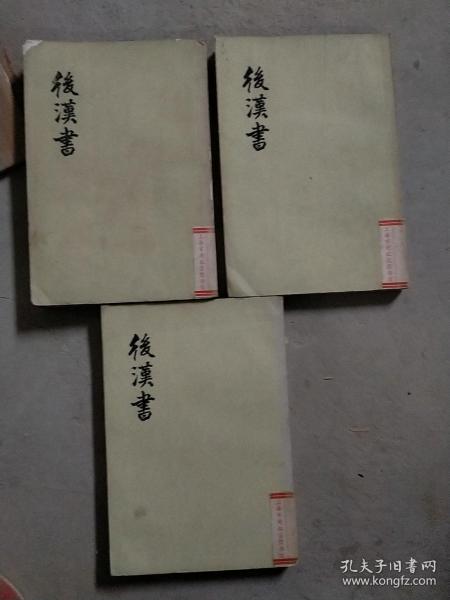 後漢書
後漢書
後漢書
孔夫子旧书网
www.kongfz.com